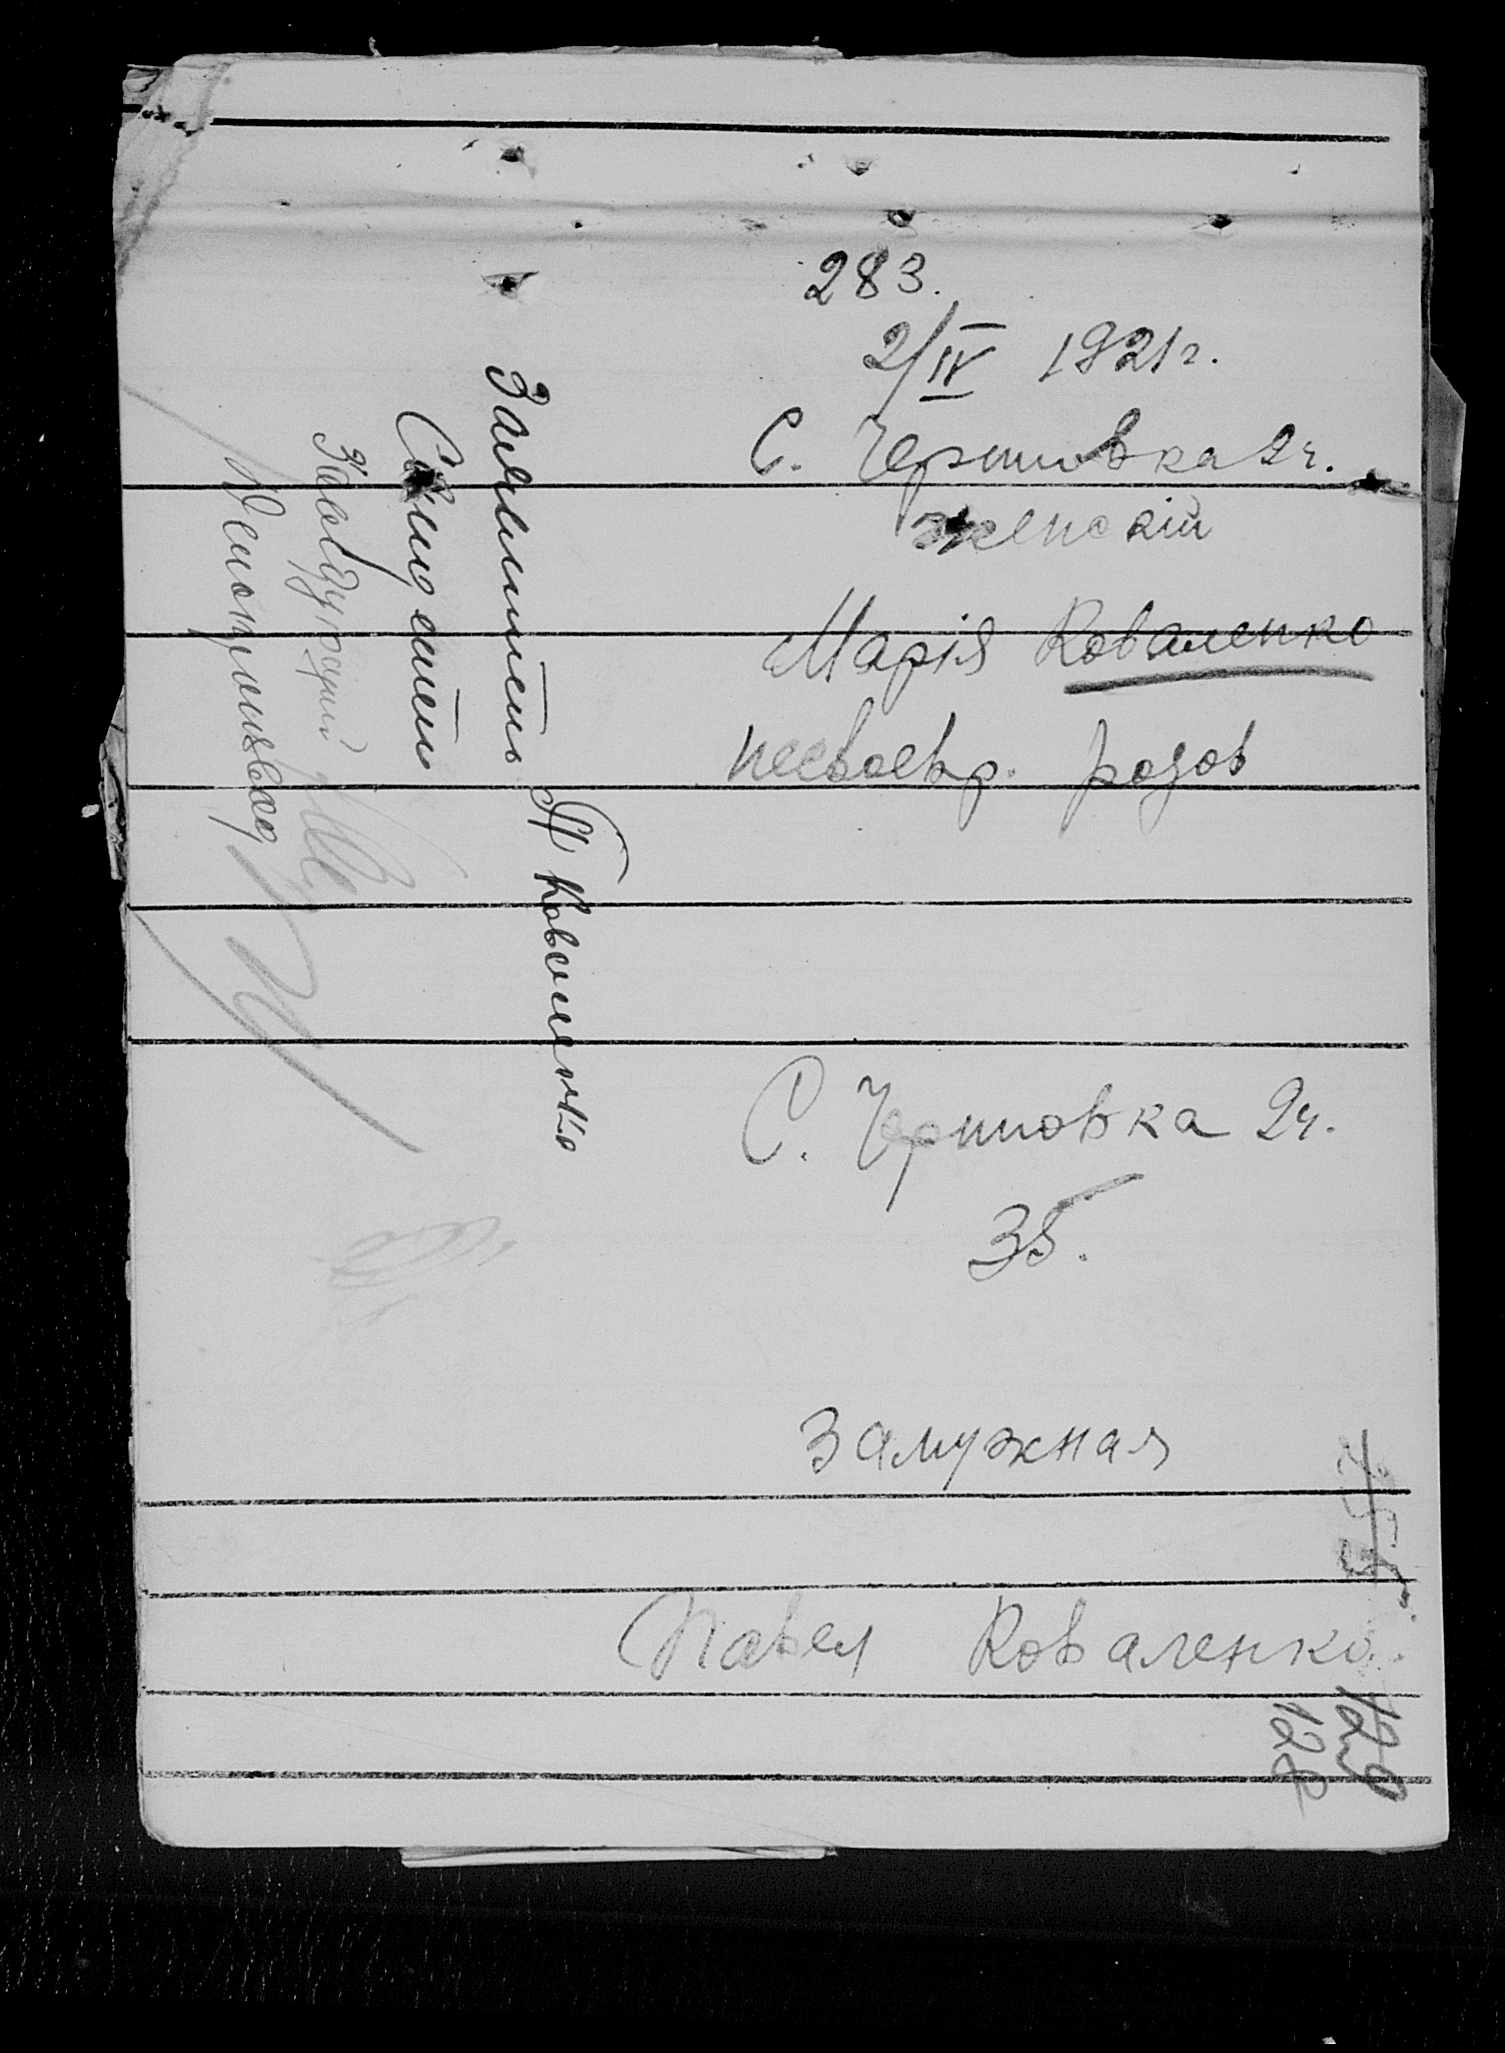 283.
2/IV 1921 г.
С. Черниовка 2 ч.
женскій
Марія Коваленко
несвоевр. родов
С. Черниовка 2 ч.
35.
Замужная
Павел Коваленко
Заявитель П Коваленко
Свидетели
Заведующий
Делопроизвод
129
128